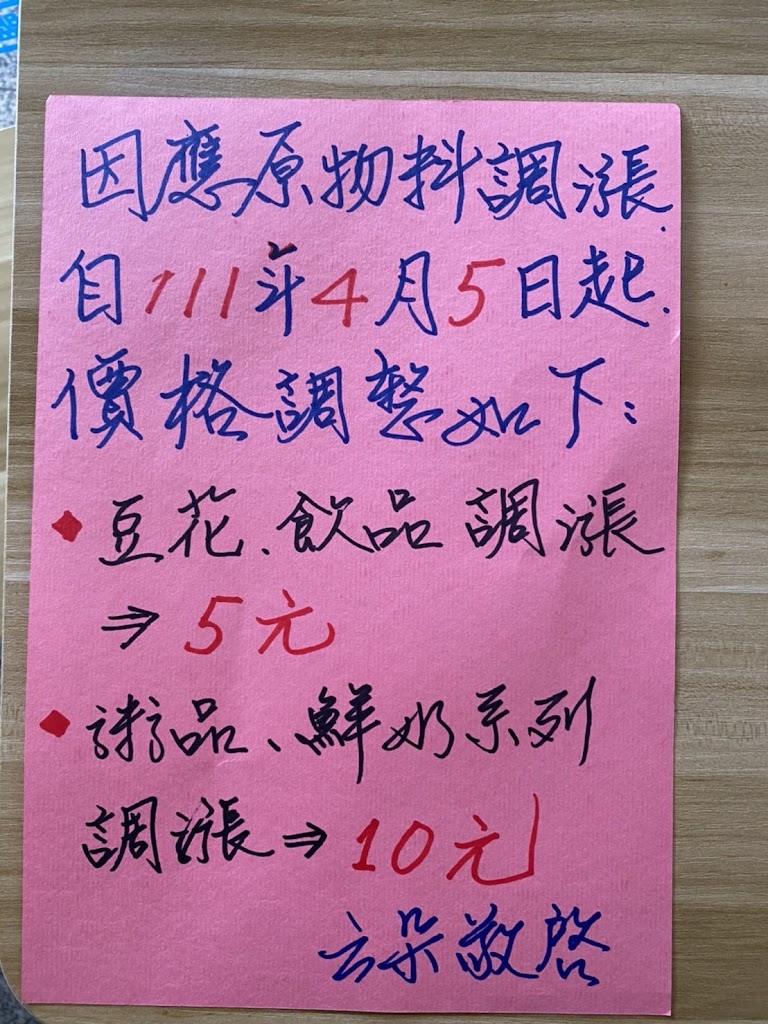 因應原物料調漲.
自111年4月5日起.
價格調整如下:
◆豆花、飲品調漲
⇒5元
◆粥品、鮮奶系列
調漲⇒10元
云朵敬啓